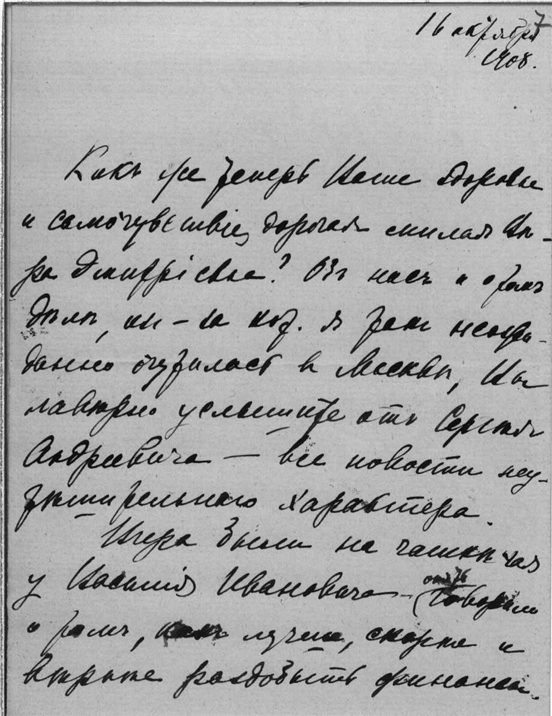 7
16 октября
1908.
Какъ же теперь Ваше здоровье
и самочувствіе, дорогая милая Вѣ-
ра Дмитріевна? Объ насъ и о томъ
дѣлѣ, из-за кот. я такъ неожи-
данно очутилась въ Москвѣ, Вы
навѣрно услышите отъ Сергѣя
Андреевича — все новости неу-
тѣшительнаго характера.
Вчера были на чашкѣ чая
у Василія Ивановича — опять говорили
о томъ, какъ лучше, скорѣе и
вѣрнѣе раздобыть финансы.